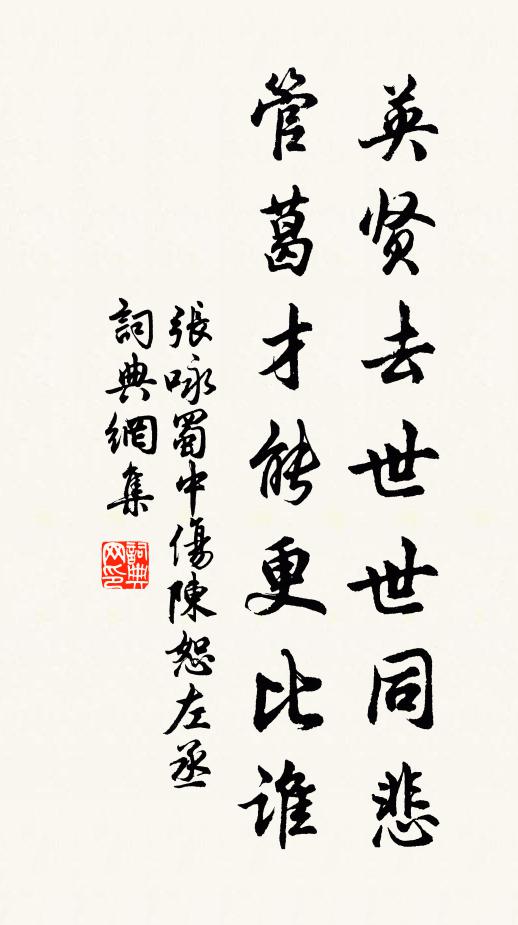 英贤去世世同悲
管葛才能更比谁
張咏蜀中傷陳恕左丞
詞典網集
詞典网印